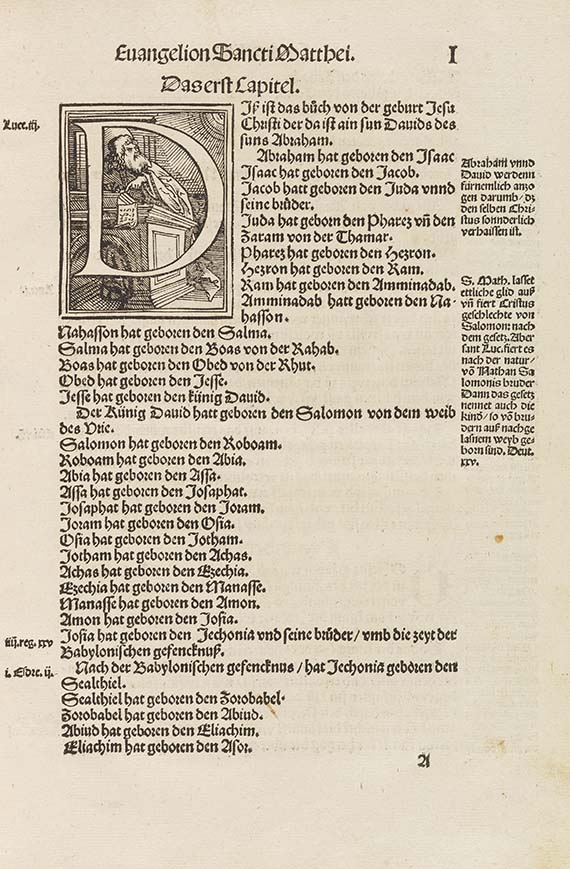 Euangelion Sancti Matthei.
I
Das erst Capitel.
Luce. iij.
DIß ist das bůch von der geburt Jesu
Christi der da ist ain sun Dauids des
suns Abraham.
Abraham hat geboren den Isaac
Isaac hat geboren den Jacob.
Jacob hatt geboren den Juda vnnd
seine brůder.
Juda hat geborn den Pharez vñ den
Zaram von der Thamar.
Pharez hat geboren den Hezron.
Hezron hat geboren den Ram.
Ram hat geboren den Amminadab.
Amminadab hatt geboren den Na-
hasson.
Nahasson hat geboren den Salma.
Salma hat geboren den Boas von der Rahab.
Boas hat geboren den Obed von der Rhut.
Obed hat geboren den Jesse.
Jesse hat geboren den künig Dauid.
Der Künig Dauid hatt geboren den Salomon von dem weib
des Vrie.
Salomon hat geboren den Roboam.
Roboam hat geboren den Abia.
Abia hat geboren den Assa.
Assa hat geboren den Josaphat.
Josaphat hat geboren den Joram.
Joram hat geboren den Osia.
Osia hat geboren den Jotham.
Jotham hat geboren den Achas.
Achas hat geboren den Ezechia.
Ezechia hat geboren den Manasse.
Manasse hat geboren den Amon.
Amon hat geboren den Josia.
Josia hat geboren den Jechonia vnd seine brůder / vmb die zeyt der
Babylonischen gefencknuß.
Nach der Babylonischen gefencknus / hat Jechonia geboren den
Sealthiel.
Sealthiel hat geboren den Zorobabel.
Zorobabel hat geboren den Abiud.
Abiud hat geboren den Eliachim.
Eliachim hat geboren den Asor.
A
iiij. reg. xxv
i. Esdre. ij.
Abraham vnnd
Dauid werdenn
fürnemlich anzo
gen darumb / dz
den selben Chri-
stus sonnderlich
verhaissen ist.
S. Math. lasset
ettliche glid auß
vñ fiert Cristus
geschlechte von
Salomon: nach
dem gesetz. Aber
sant Luc. fiert es
nach der natur /
võ Nathan Sa
lomonis bruder
Dann das gesetz
nennet auch die
kind / so võ brů-
dern auß nachge
laßnem weyb ge-
born sind. Deut.
xxv.